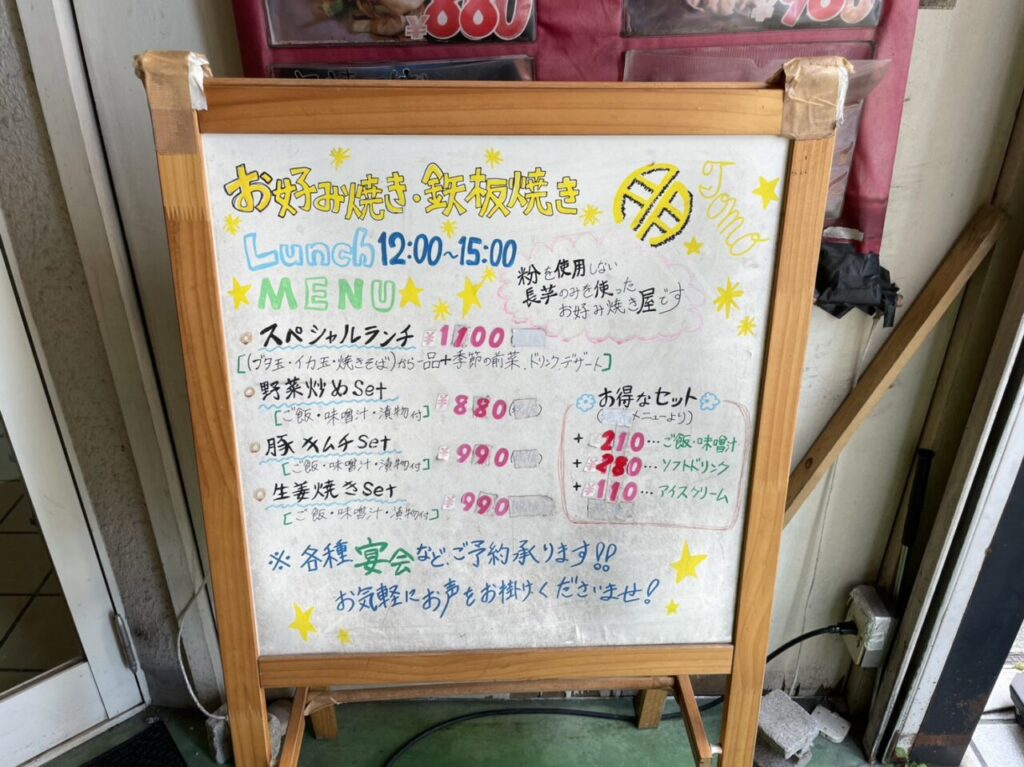 ¥880
お好み焼き・鉄板焼き
Tomo
Lunch 12:00~15:00
MENU
粉を使用しない
長芋のみを使った
お好み焼き屋です
スペシャルランチ ¥1100
[(ブタ玉・イカ玉・焼きそば)から一品+季節の前菜、ドリンク、デザート]
野菜炒めSet ¥880
[ご飯・味噌汁・漬物付]
豚キムチSet ¥990
[ご飯・味噌汁・漬物付]
生姜焼きSet ¥990
[ご飯・味噌汁・漬物付]
お得なセット
メニューより)
+210…ご飯・味噌汁
+280…ソフトドリンク
+110…アイスクリーム
※各種宴会などご予約承ります!!
お気軽にお声をお掛けくださいませ!